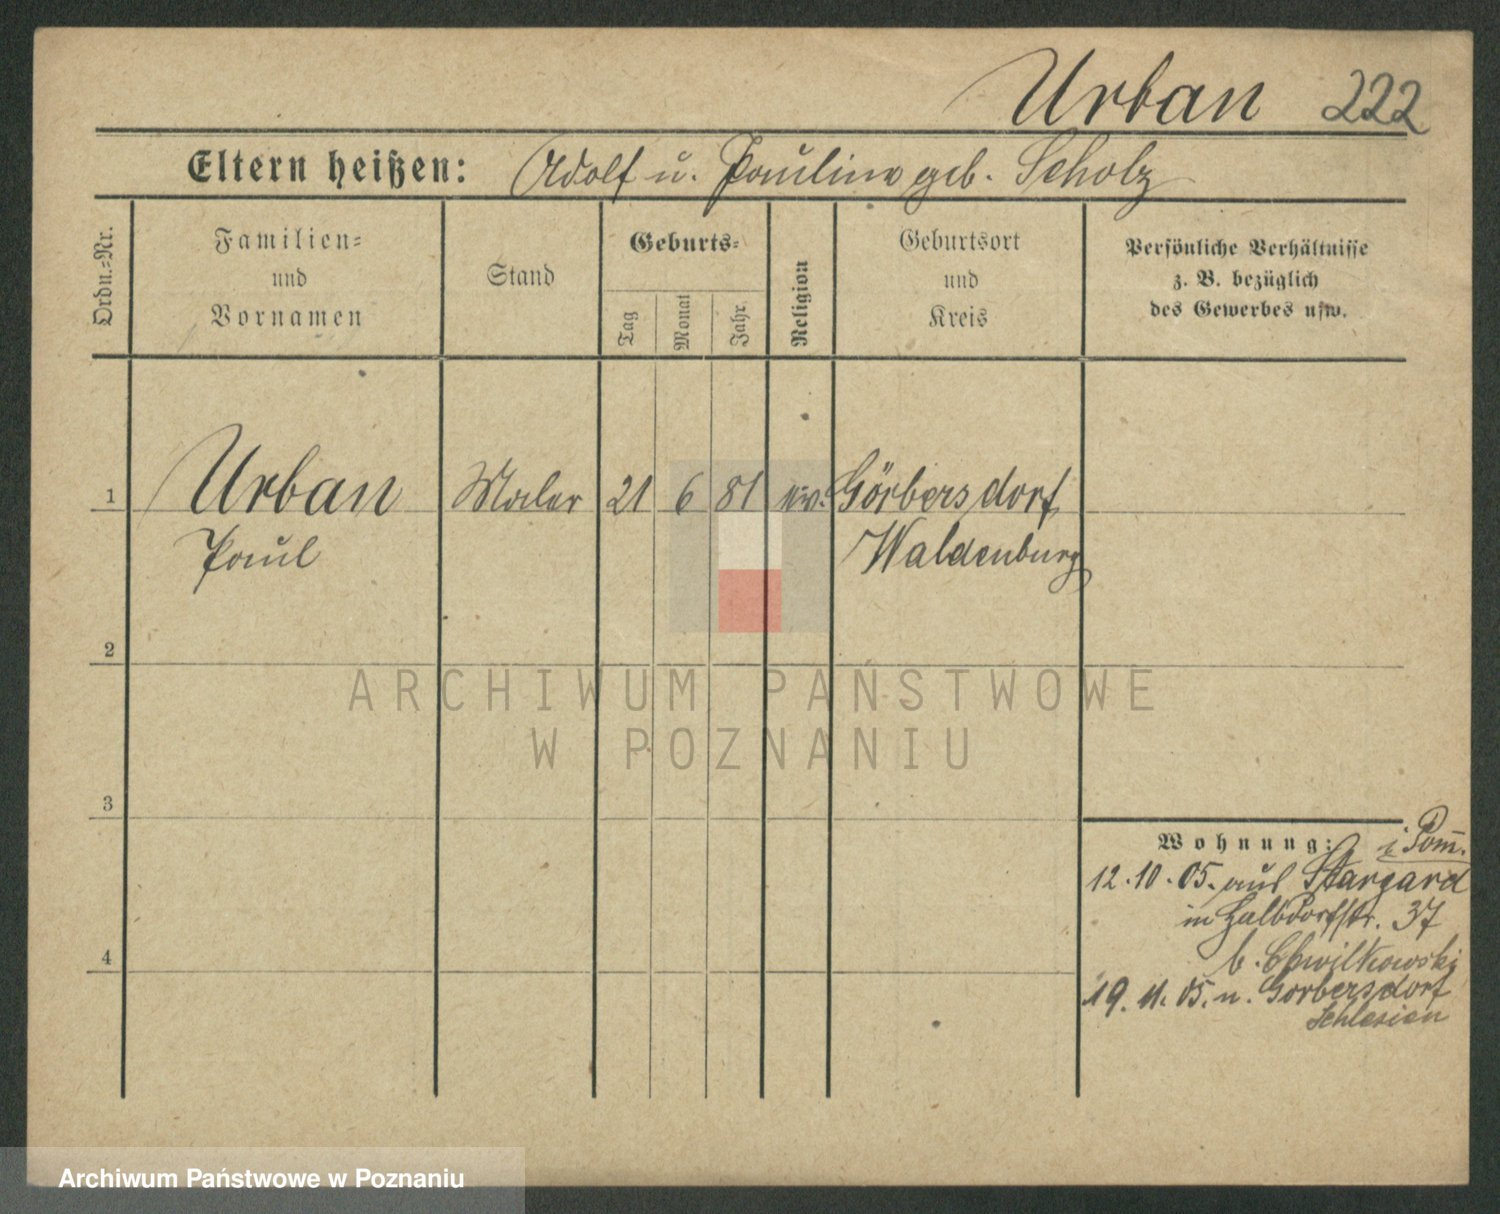 Urban 222
Eltern heißen: Adolf u. Pauline geb. Scholz
Ordn.-Nr.
Familien-
und
Vornamen
Stand
Geburts-
Tag
Monat
Jahr
Religion
Geburtsort
und
Kreis
Persönliche Verhältnisse
z. B. bezüglich
des Gewerbes usw.
1 Urban Maler 21 6 81 ev. Görbersdorf
Paul Waldenburg
2
3
4
Wohnung: i. Pom̄.
12.10.05. aus Stargard
in Halbdorfstr. 37
b. Chwilkowski
19.11.05. n. Görbersdorf
Schlesien
ARCHIWUM PAŃSTWOWE
W POZNANIU
Archiwum Państwowe w Poznaniu